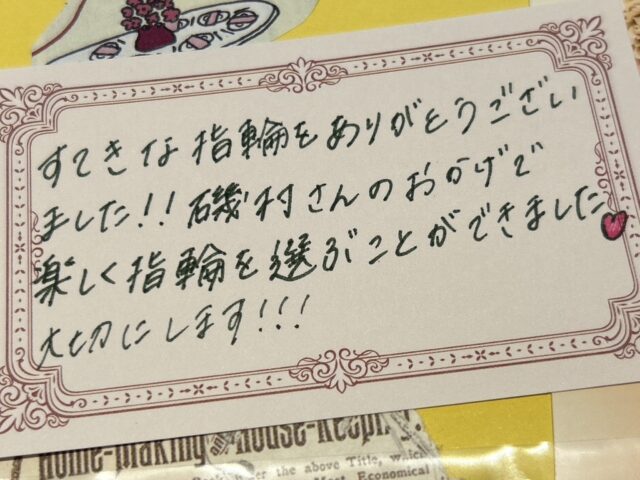 すてきな指輪をありがとうござい
ました!!磯村さんのおかげで
楽しく指輪を選ぶことができました
大切にします!!!
Home-making and House-keeping.
the above Title, which
Most Economical